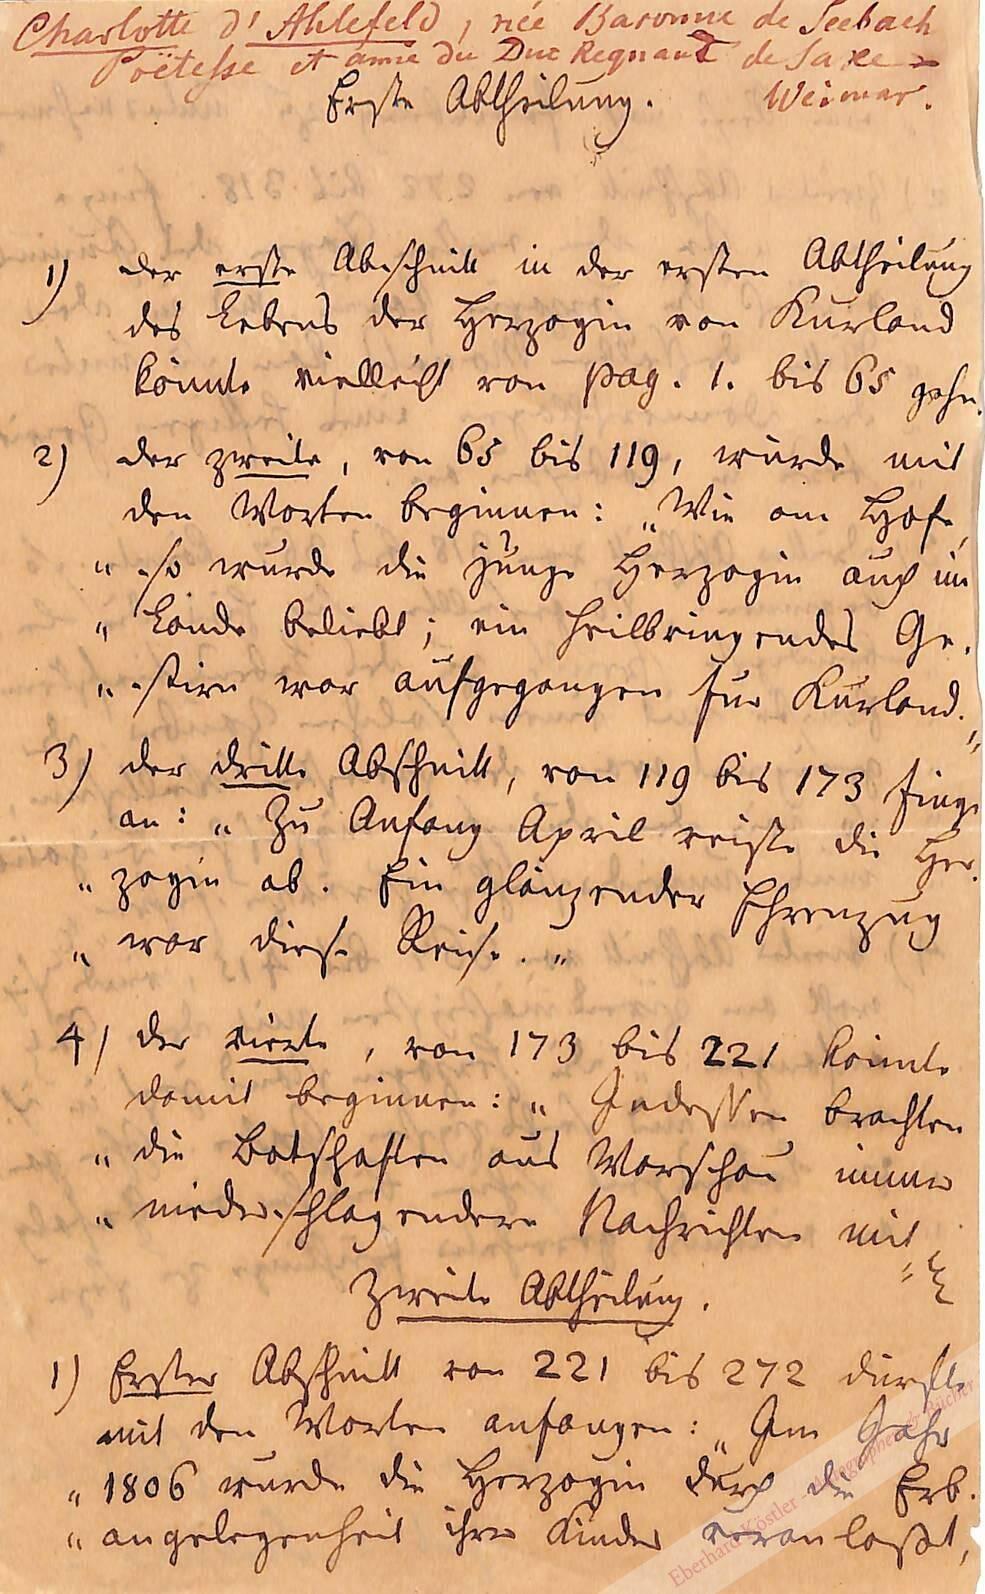 Charlotte d'Ahlefeld, née Baronne de Seebach
Poëtesse et amie du Duc Regnant de Saxe=
Weimar.
Erste Abtheilung.
1) der erste Abschnitt in der ersten Abtheilung
des Lebens der Herzogin von Kurland
könnte vielleicht von pag. 1. bis 65 gehn.
2) der zweite, von 65 bis 119, würde mit
den Worten beginnen: „Wie am Hofe,
„ so wurde die junge Herzogin auch im
„ Lande beliebt; ein heilbringendes Ge-
„ stirn war aufgegangen für Kurland."
3) der dritte Abschnitt, von 119 bis 173 finge
an: „Zu Anfang April reiste die Her-
„ zogin ab. Ein glänzender Ehrenzug
„ war diese Reise."
4) der vierte, von 173 bis 221 könnte
damit beginnen: „Indessen brachten
„ die Botschaften aus Warschau immer
„ niederschlagendere Nachrichten mit"
Zweite Abtheilung.
1) Erster Abschnitt von 221 bis 272 dürfte
mit den Worten anfangen: „Im Jahr
„ 1806 wurde die Herzogin durch die Erb-
„ angelegenheit ihrer Kinder veranlaßt,
Eberhard Köstler - Autographen & Bücher